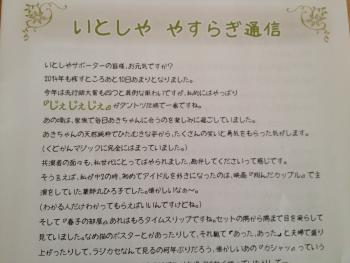 いとしや やすらぎ通信
いとしやサポーターの皆様、お元気ですか?
2014年も残すところあと10日あまりとなりました。
今年は流行語大賞も四つと異例な賑わいですが、私的にはやっぱり
『じぇじぇじぇ』がダントツ比類で一番ですね。
あの頃は、家族で毎日あきちゃんに会うのを楽しみに過ごしていました。
あきちゃんの天然純粋でひたむきな姿から、たくさんの笑いと勇気をもらった気がします。
(くどかんマジックに完全にはまっていました。)
共演者の面々も、私世代にとってはやられました、勘弁してくださいって感じです。
そういえば、私が中2の時、初めてアイドルを好きになったのは、映画『翔んだカップル』で主
演をしていた薬師丸ひろ子でした。懐かしいなあ~
(わかる人だけわかってもらえればいいんですけどね。)
そして『春子の部屋』あれはもろタイムスリップですね。セットの隅から隅まで目を凝らして
見ていました。なめ猫のポスターとかあったりして、それ観て『あった、あった』と夫婦で盛り
上がったりして、ラジカセなんて見るの何年ぶりだろう、懐かしいあの『カシャッ』っていう